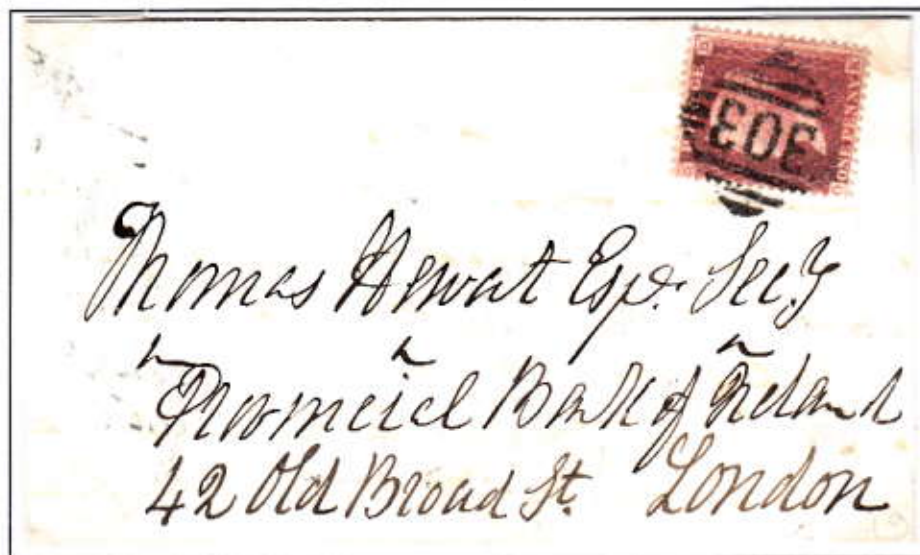 303
Thomas Hewat Esqr. Sec.y
Provincial Bank of Ireland
42 Old Broad St. London